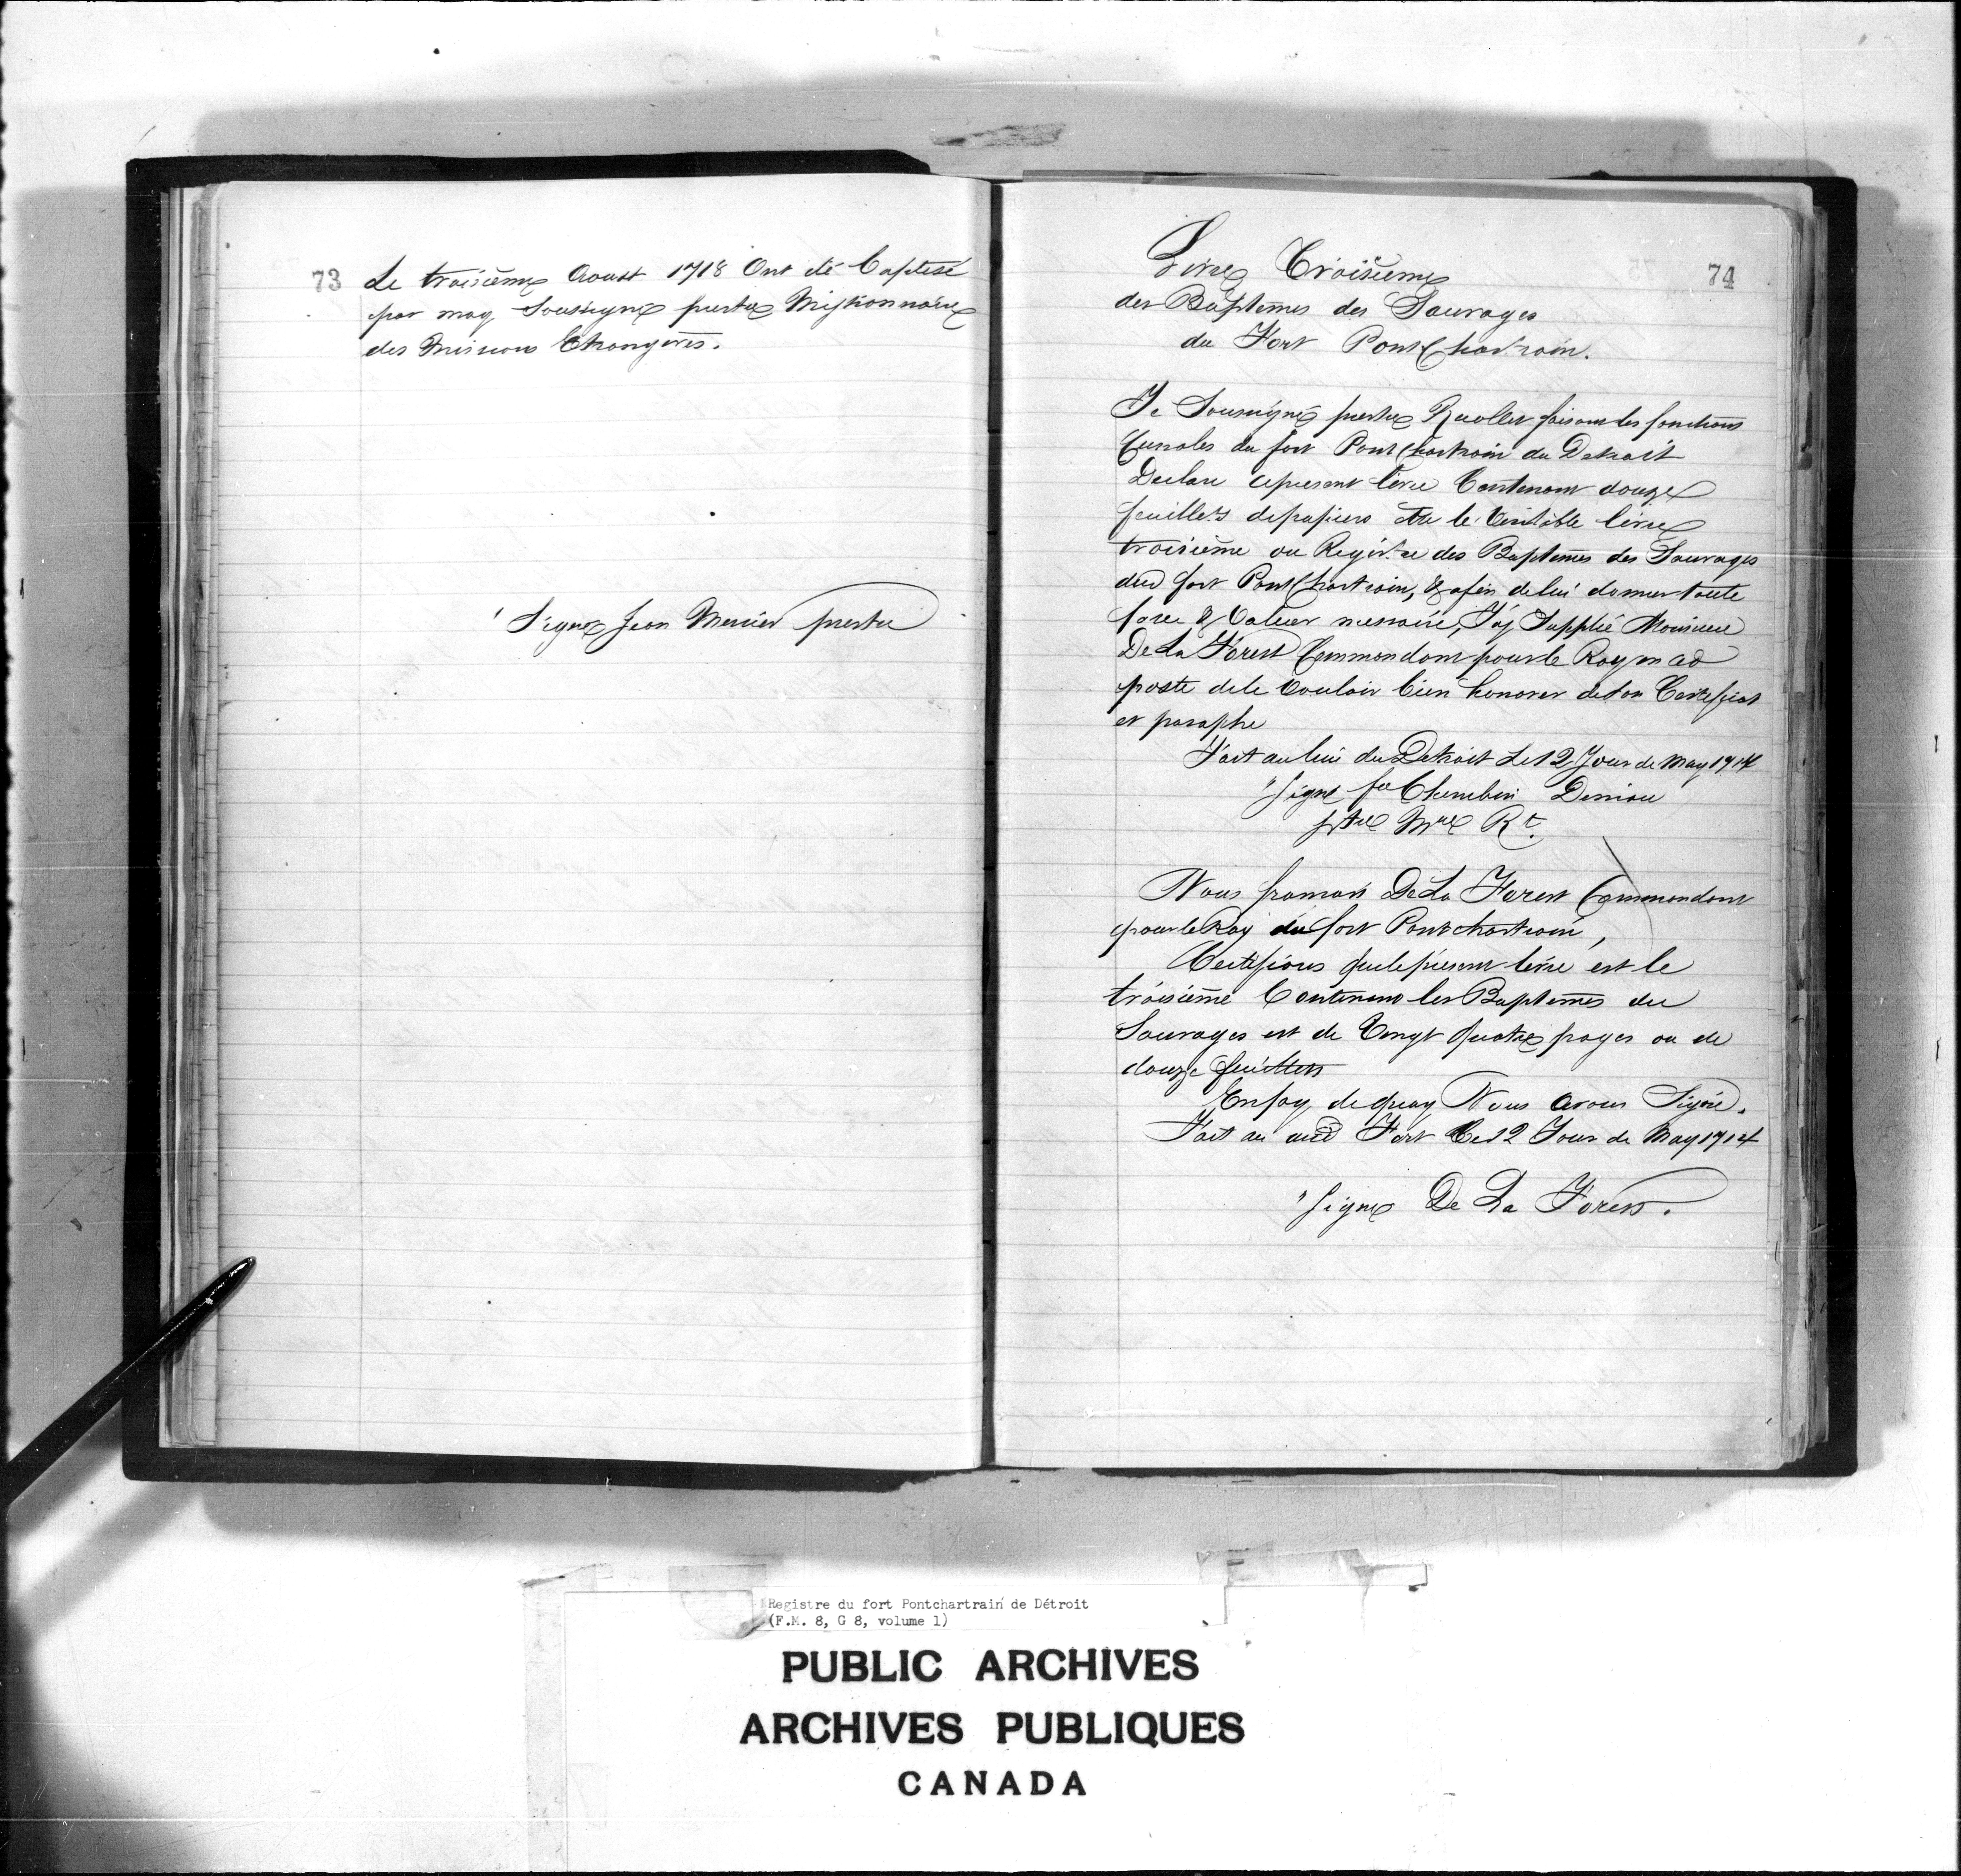 73
Le troisième Aoust 1718 Ont été baptisé
par moy Soussigné prestre Missionnaire
des Missions Etrangères.
Signé Jean Mercier prestre
74
Livre Troisieme
des Baptemes des Sauvages
du Fort PontChartrain.
Je Soussigné prestre Recollet faisant les fonctions
Curiales du fort PontChartrain du Detroit
Declare ce present livre Contenant douze
feuillets de papiers Etre le Veritable livre
troisième ou Registre des Baptemes des Sauvages
dud fort PontChartrain, & afin de lui donner toute
force & Valeur necessaire, J'ay Supplié Monsieur
De La Forest Commandant pour le Roy
poste de le vouloir bien honorer de son Certificat
et paraphe
Fait au lieu du Detroit Le 12 Jour de May 1714
"Signé fr Cherubin Deniau
ptre Mre Rt.
Nous francois De La Forest Commandant
pour le Roy du fort Pontchartrain,
Certifions que le present livre est le
troisième Contenant les Baptemes du
Sauvages et de Vingt quatre pages ou de
douze feuillets
En foy de quoy Nous avons Signé.
Fait au aud Fort Ce 12 Jour de May 1714
"Signé De La Forest.
Registre du fort Pontchartrain de Détroit
(F.M. 8, G 8, volume 1)
PUBLIC ARCHIVES
ARCHIVES PUBLIQUES
CANADA